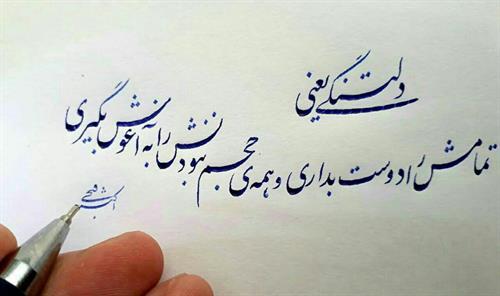 دلتنگی یعنی
تمامش را دوست بداری و همه‌ی حجم نبودنش را به آغوش بگیری